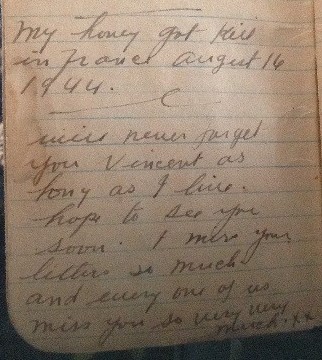 My honey got kill
in France August 16
1944.
will never forget
you Vincent as
long as I live.
hope to see you
soon. I miss your
letters so much
and every one of us
miss you so very very
much. xx